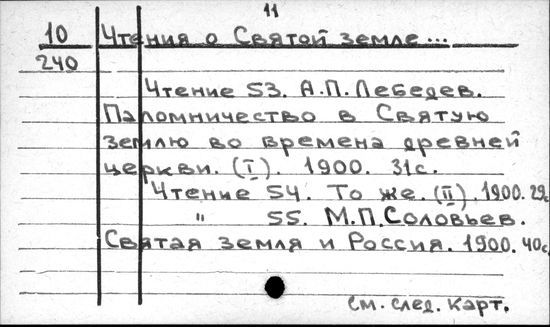 11
10 Чтения о Святой земле...
240
Чтение 53. А.П. Лебедев.
Паломничество в Святую
землю во времена древней
церкви. (I). 1900. 31с.
Чтение 54. То же. (II). 1900. 29с
" 55. М.П. Соловьев.
Святая земля и Россия. 1900. 40с.
см. след. карт.